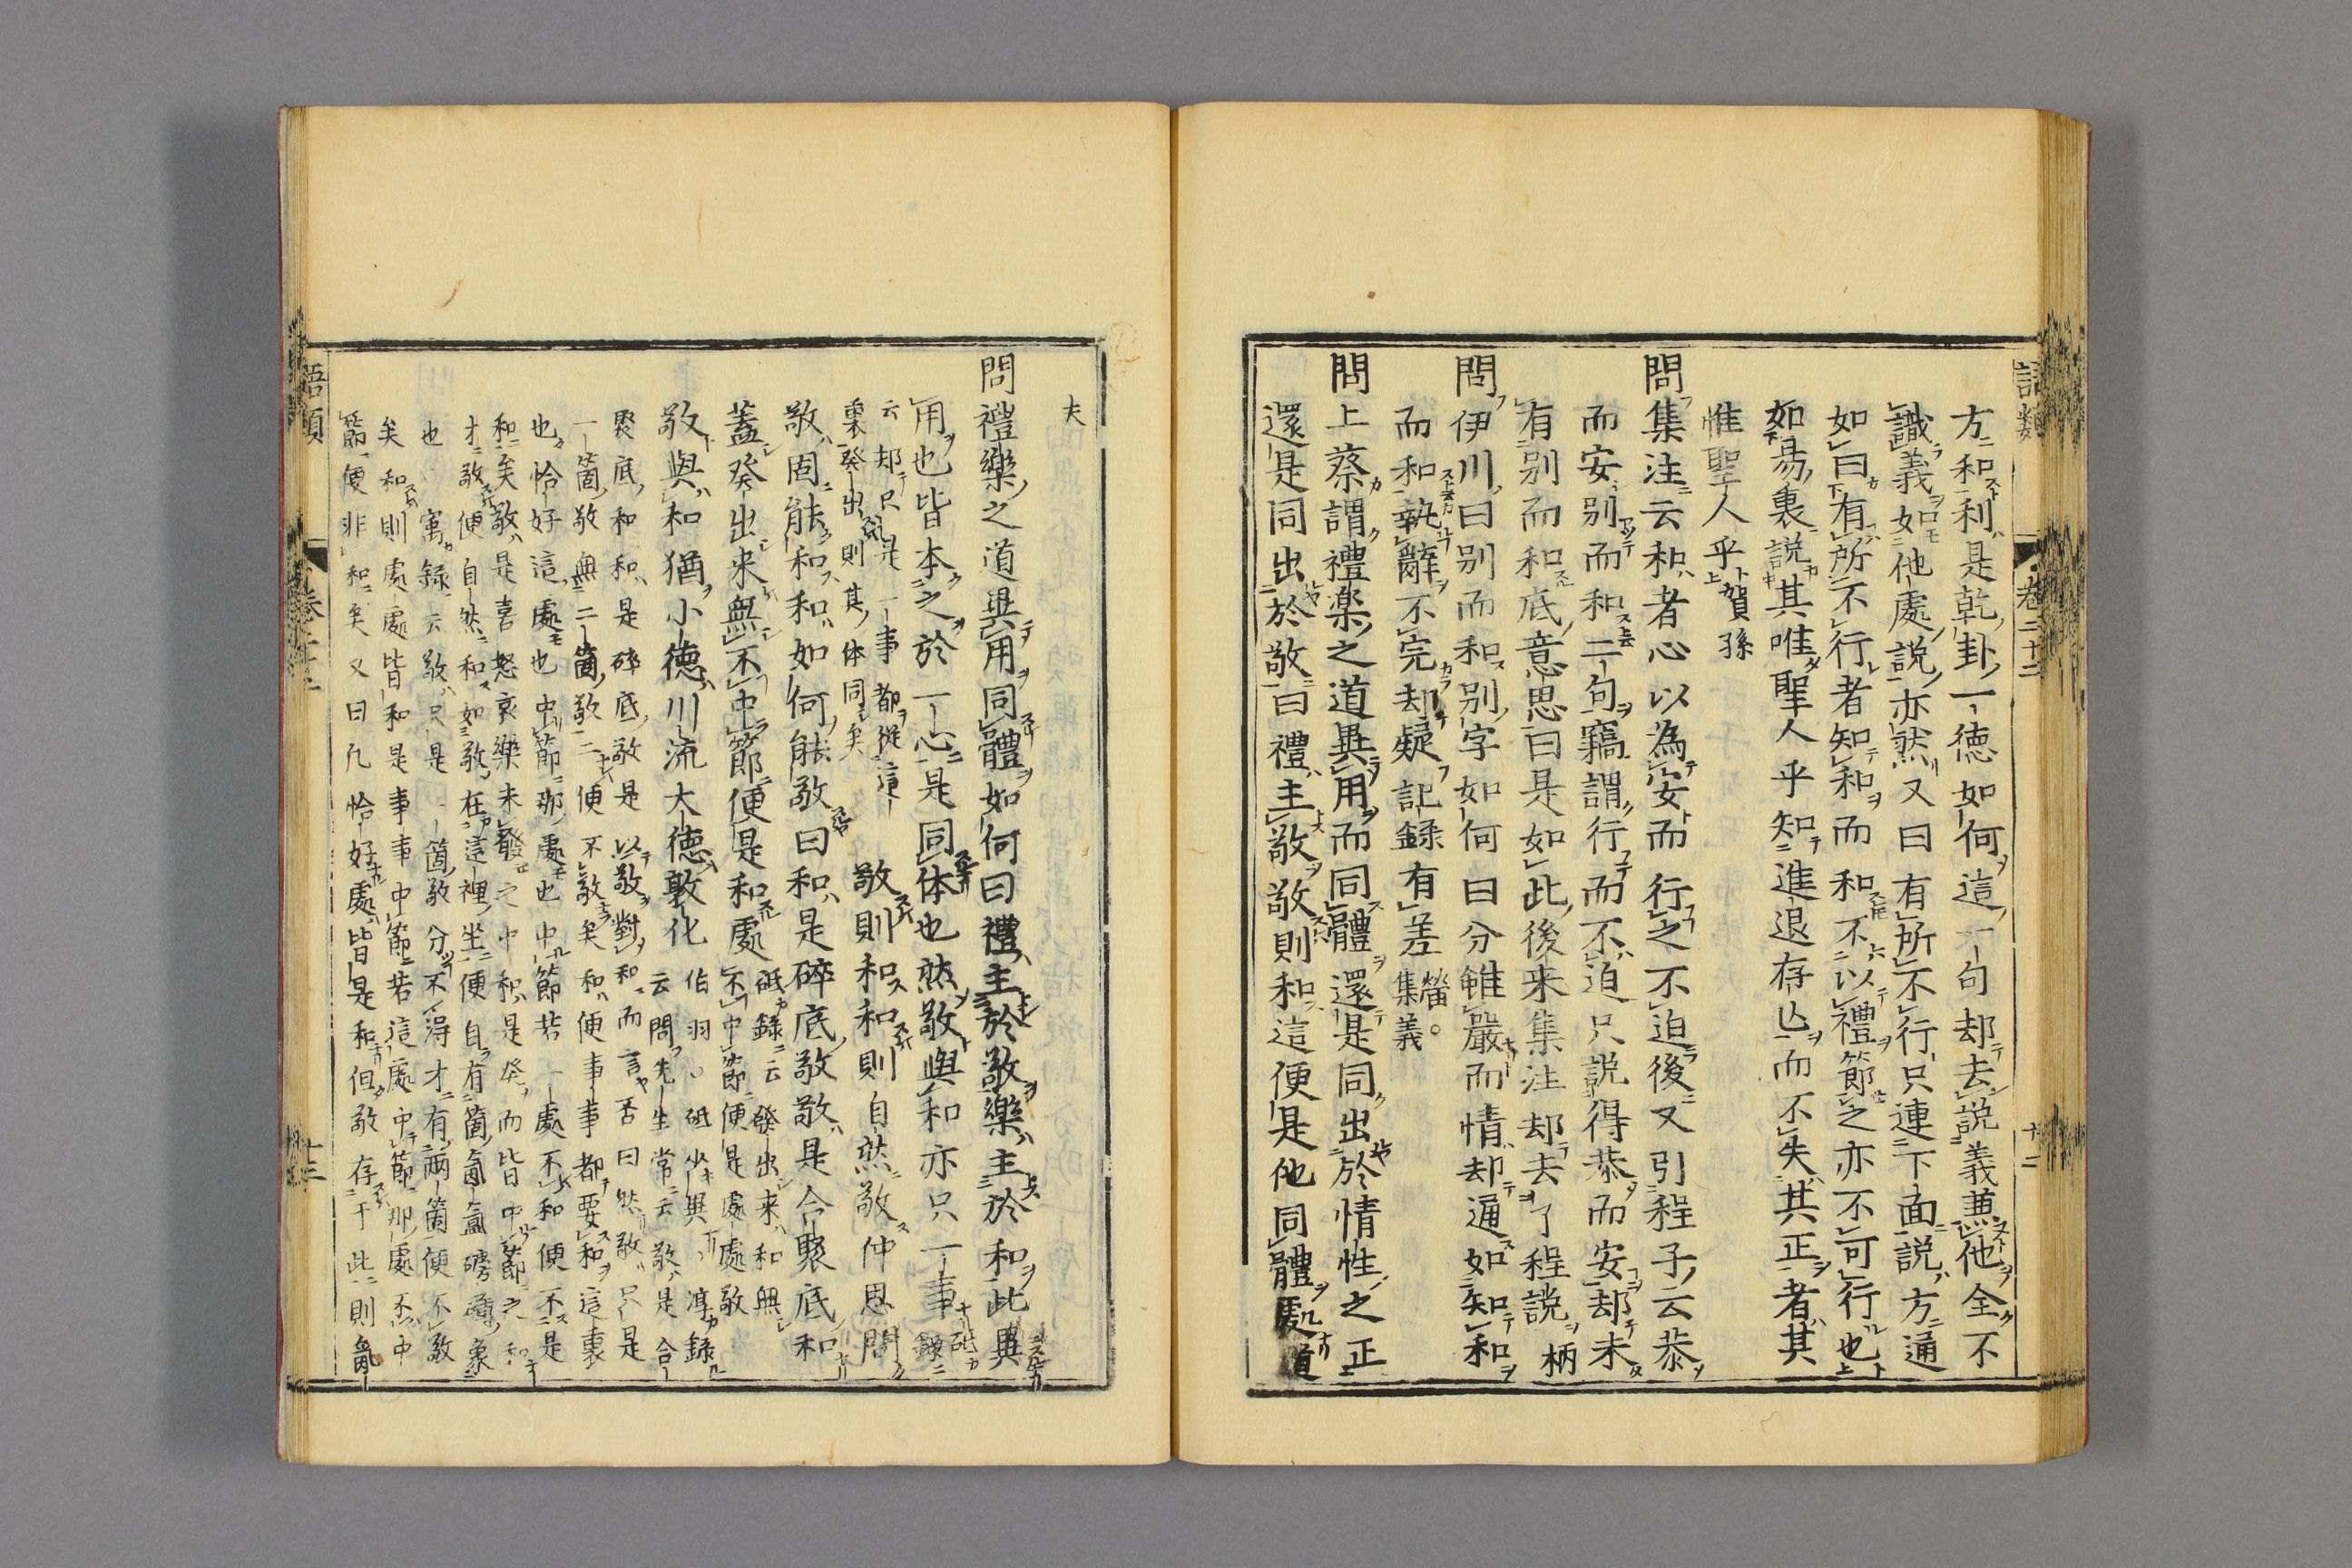 語類
卷二十二
十二
方和利是乾卦一德如何這一句却去說義兼他全不
識義如他處說亦然又曰有所不行只連下面說方通
如曰有所不行者知和而和不以禮節之亦不可行也
如易裏說其唯聖人乎知進退存亡而不失其正者其
惟聖人乎 賀孫
問集注云和者心以為安而行之不迫後又引程子云恭
而安別而和二句竊謂行而不迫只說得恭而安却未
有別而和底意思曰是如此後来集注却去了程說 柄
問伊川曰別而和別字如何曰分雖嚴而情却通如知和
而和執辭不完却疑記錄有差 㽦 集義
問上蔡謂禮樂之道異用而同體還是同出於情性之正
還是同出於敬曰禮主敬敬則和這便是他同體處 道
夫
問禮樂之道異用同體如何曰禮主於敬樂主於和此異
用也皆本之於一心是同体也然敬與和亦只一事 砥録
云却只是一事都從這
裏發出則其体同矣 敬則和和則自然敬仲思問
敬固能和和如何能敬曰和是碎底敬敬是合聚底和
蓋發出来無不中節便是和處 砥録云發出来和無
不中節便是處處敬
敬與和猶小德川流大德敦化 伯羽砥少異 淳録
云問先生常云敬是合
聚底和和是碎底敬是以敬對和而言否曰然敬只是
一箇敬無二箇敬二便不敬矣和便事事都要和這裏
也恰好這處也中節那處也中節若一處不和便不是
和矣敬是喜怒哀樂未發之中和是發而皆中節之和
才敬便自然和如敬在這裡坐便自有箇氤氳磅礴象
也 㝢録云敬只是一箇敬分不得才有兩箇便不敬
矣和則處處皆和是事事中節若這處中節那處不中
節便非和矣又曰凡恰好處皆是和但敬存于此則氤
語類
卷二十二
十三